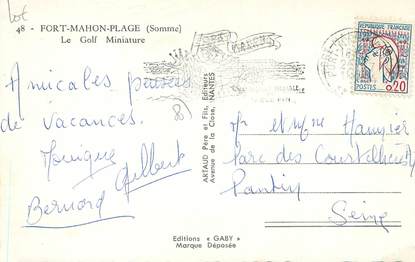 lot
48 - FORT-MAHON-PLAGE (Somme)
Le Golf Miniature
Amicales pensées
de Vacances.
Monique
Gilbert
Bernard
8)
ARTAUD Père et Fils, Editeurs
Avenue de la Close, NANTES
REPUBLIQUE FRANCAISE
POSTES 0,20
Mr et Mme
Parc des Courtillières
Pantin
Seine
Editions « GABY »
Marque Déposée